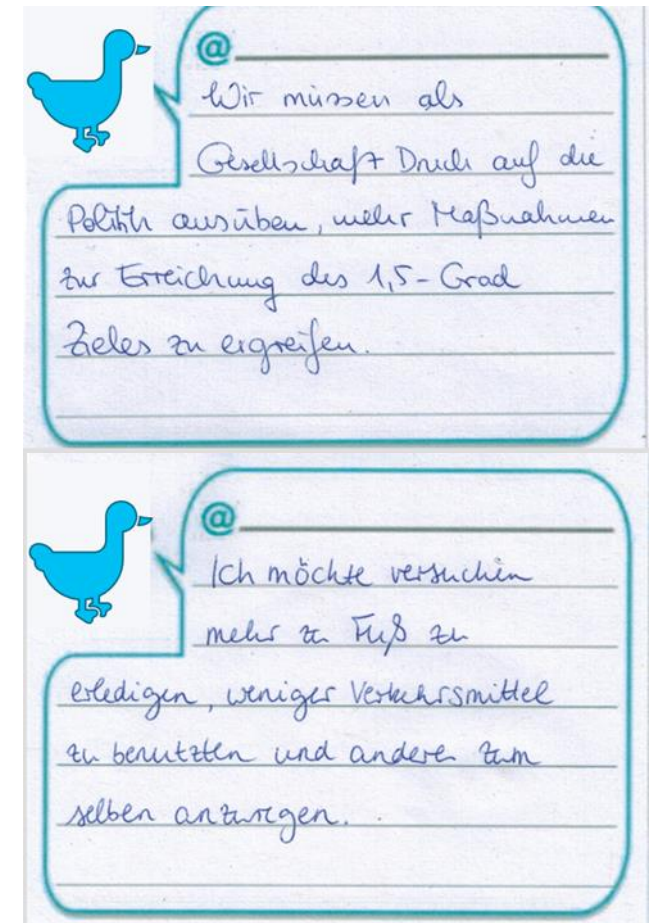 @
Wir müssen als
Gesellschaft Druck auf die
Politik ausüben, mehr Maßnahmen
zur Erreichung des 1,5-Grad
Zieles zu ergreifen.
@
Ich möchte versuchen
mehr zu Fuß zu
erledigen, weniger Verkehrsmittel
zu benutzten und andere zum
selben anzuregen.